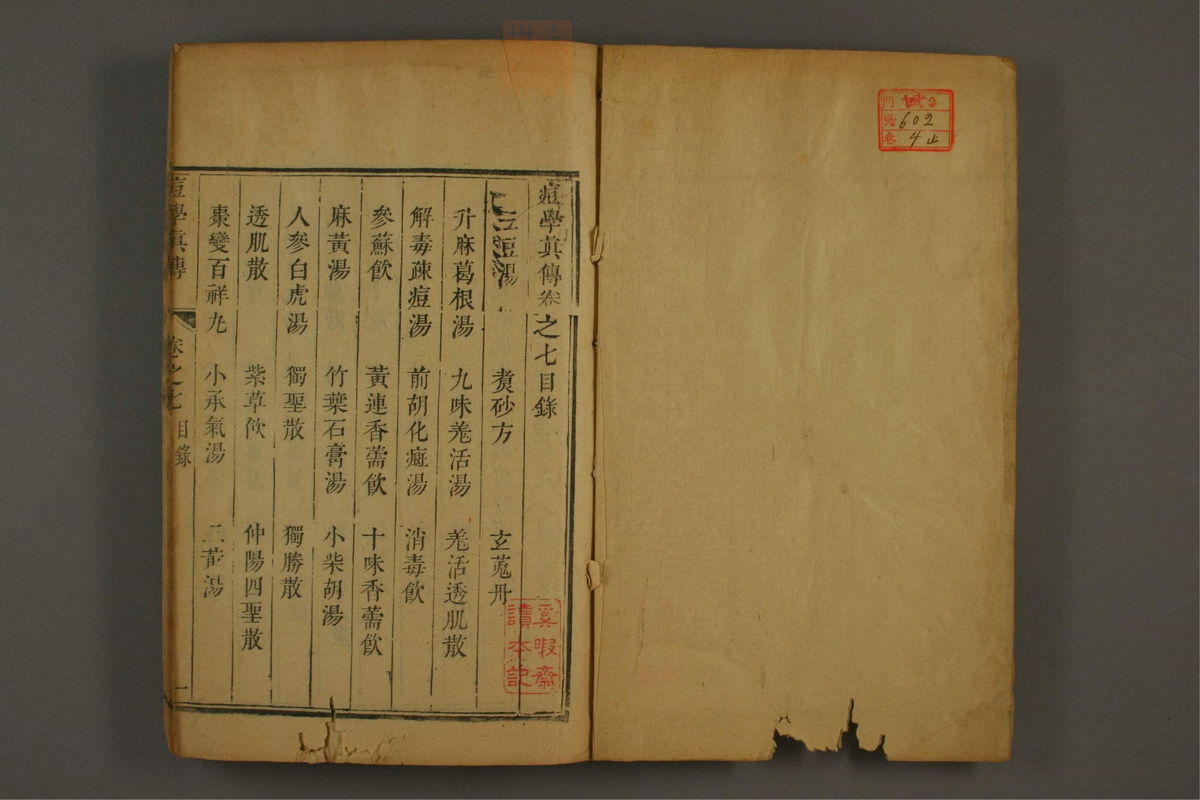 痘學眞傳卷之七目錄
三痘湯 煑砂方 玄菟丹
升麻葛根湯 九味羗活湯 羗活透肌散
解毒疎痘湯 前胡化癍湯 消毒飮
參蘇飮 黃連香薷飮 十味香薷飮
麻黃湯 竹葉石膏湯 小柴胡湯
人參白虎湯 獨聖散 獨勝散
透肌散 紫草飮 仲陽四聖散
棗變百祥丸 小承氣湯 二黃湯
痘學眞傳 卷之七 目錄 一
奚暇齋
讀本記
門
號 602
卷 4止